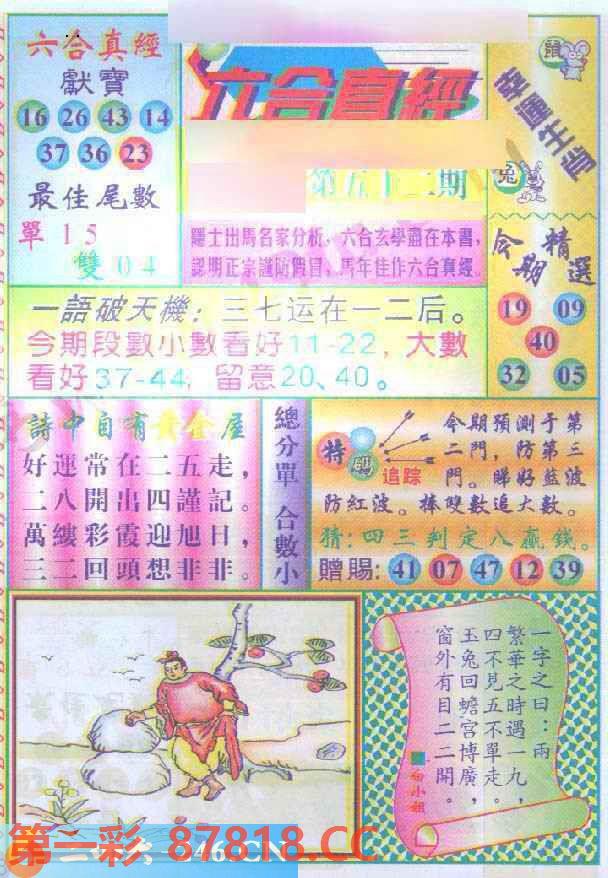 六合真經
獻寶
16 26 43 14
37 36 23
最佳尾數
單 15
雙 04
六合真經
第五十二期
隱士出馬名家分析，六合玄學蘊在本書，
認明正宗謹防假冒，馬年佳作六合真經。
鼠
幸運生肖
兔
今期
精選
19 09
40
32 05
一語破天機：三七运在一二后。
今期段數小數看好11-22，大數
看好37-44，留意20、40。
詩中自有黃金屋
好運常在二五走，
二八開出四謹記。
萬縷彩霞迎旭日，
三二回頭想非非。
總分單 合數小
特碼
追踪
今期預測于第
二門，防第三
門。睇好藍波
防紅波。捧雙數追大數。
猜：四三判定八贏錢。
贈賜：41 07 47 12 39
一字之曰：兩
繁華之時遇一九，
四不見五不單走。
玉兔回蟾宮博廣，
窗外有目二二開。
白小姐
第一彩 87818.CC